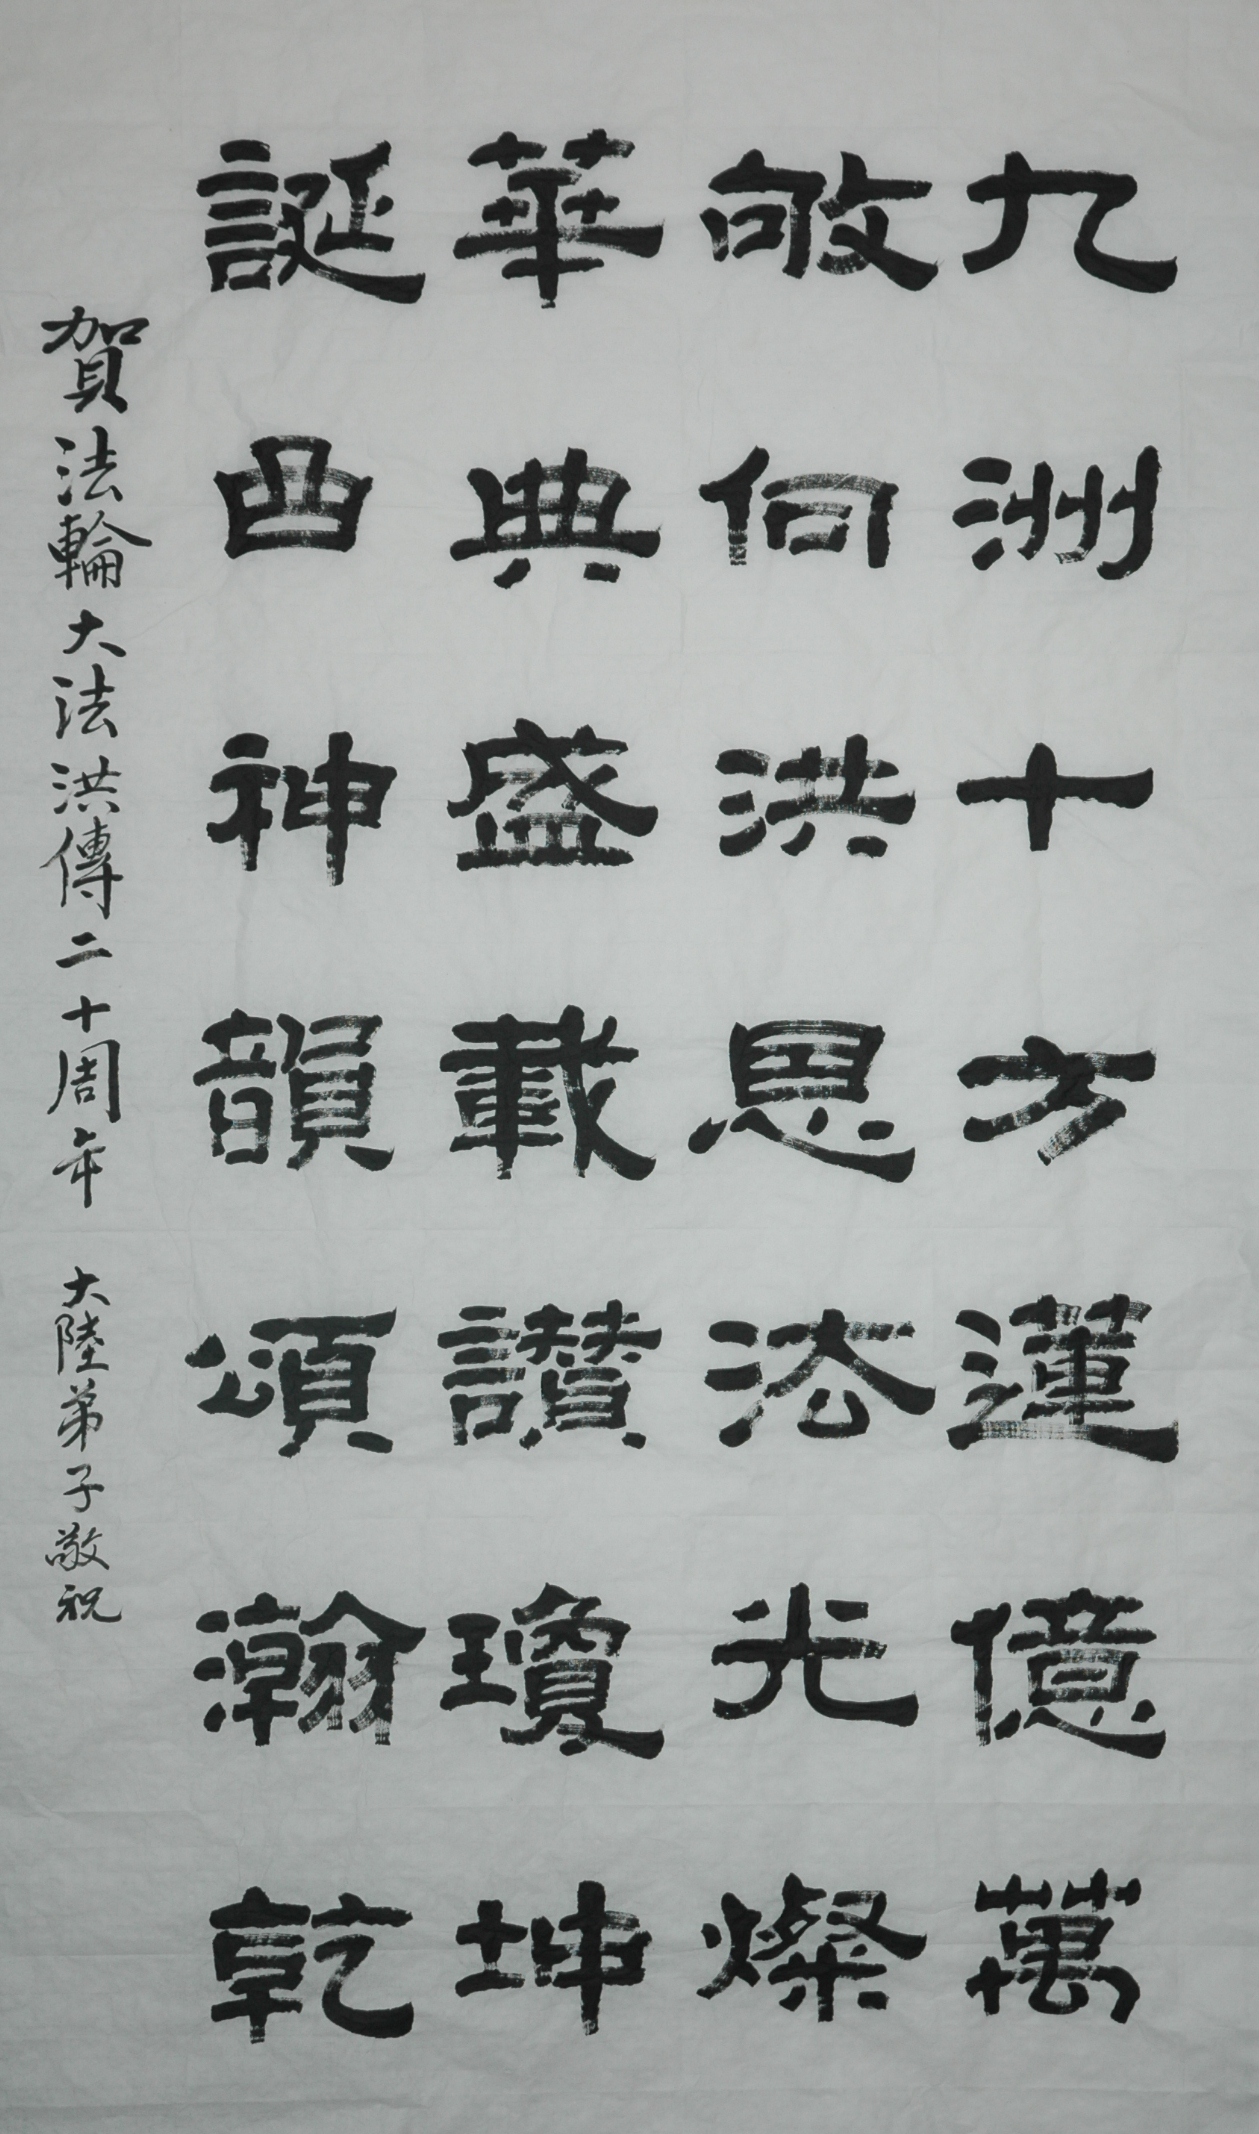 九洲十方蓮億萬
敬洪恩法光燦
華典盛載讚瓊坤
誕神韻頌瀚乾
賀法輪大法洪傳二十周年 大陸弟子敬祝